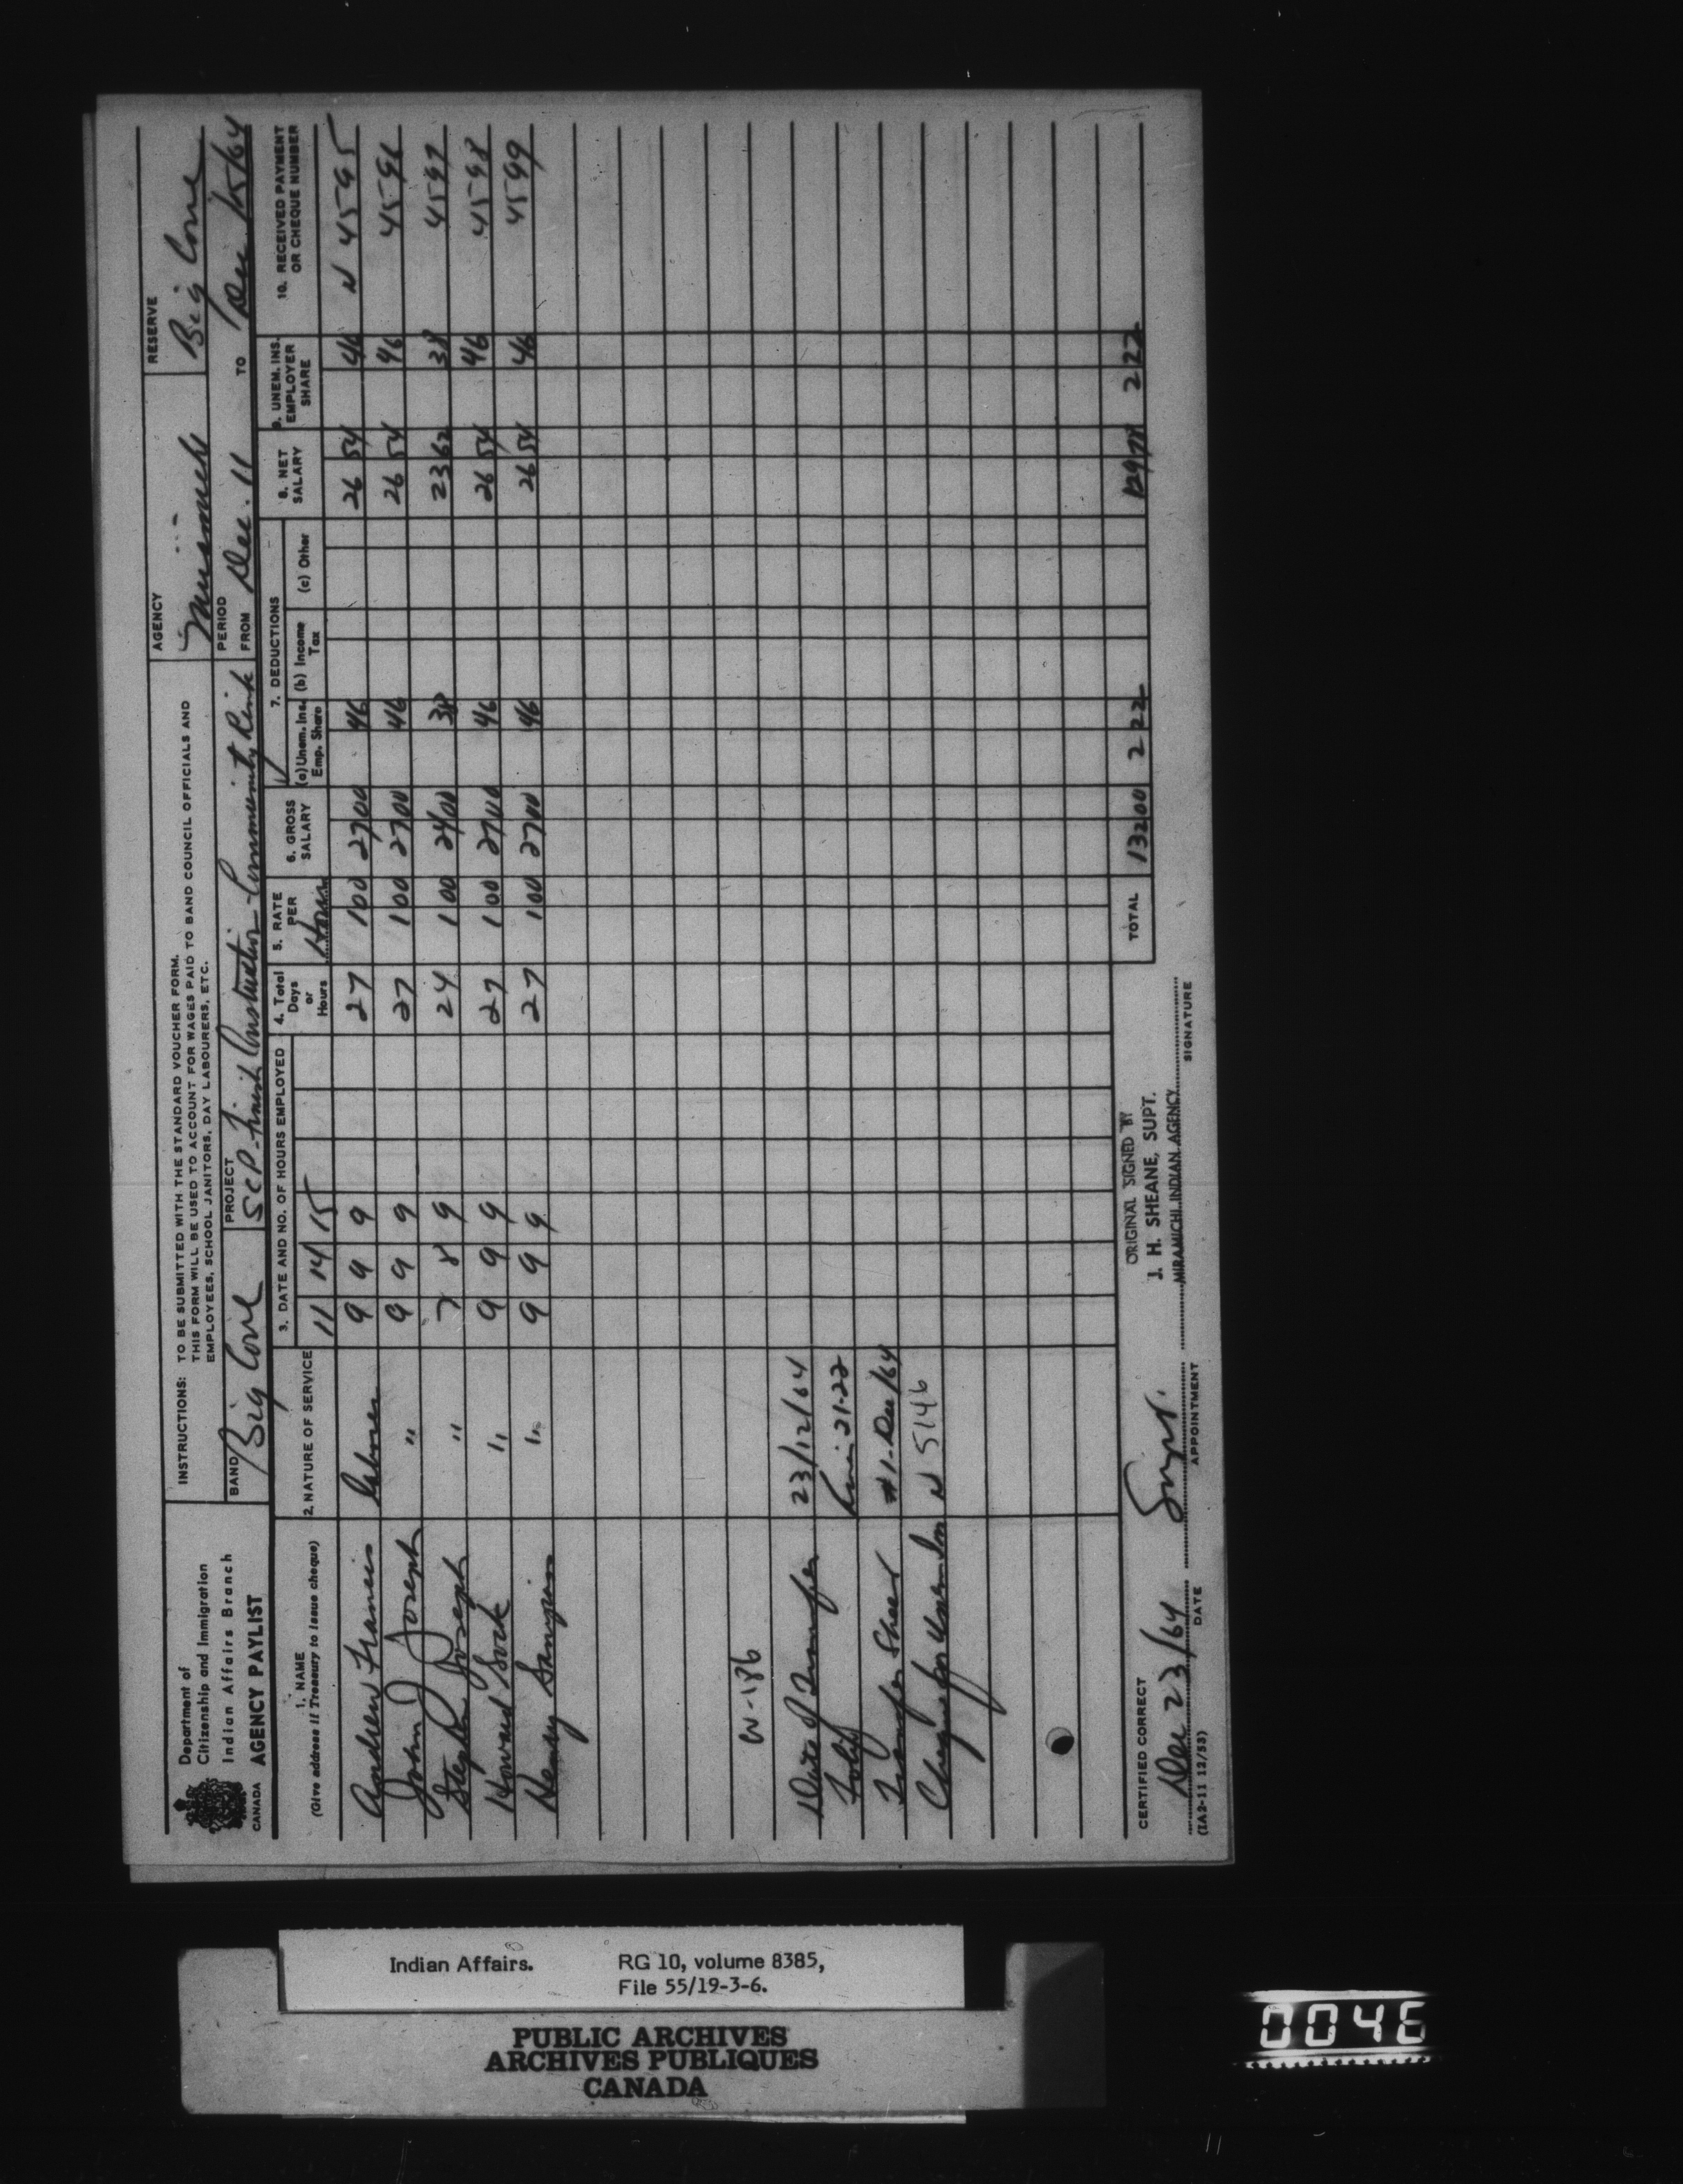 Department of
Citizenship and Immigration
Indian Affairs Branch
CANADA AGENCY PAYLIST
INSTRUCTIONS: TO BE SUBMITTED WITH THE STANDARD VOUCHER FORM.
THIS FORM WILL BE USED TO ACCOUNT FOR WAGES PAID TO BAND COUNCIL OFFICIALS AND
EMPLOYEES, SCHOOL JANITORS, DAY LABOURERS, ETC.
AGENCY Miramichi
RESERVE Big Cove
BAND Big Cove
PROJECT SCP-Finish Construction-Community Rink
PERIOD FROM Dec. 11 TO Dec 15/64
1. NAME (Give address if Treasury to issue cheque) 2. NATURE OF SERVICE 3. DATE AND NO. OF HOURS EMPLOYED 4. Total Days or Hours 5. RATE PER Hour 6. GROSS SALARY 7. DEDUCTIONS (a) Unem. Ins. Emp. Share (b) Income Tax (c) Other 8. NET SALARY 9. UNEM. INS. EMPLOYER SHARE 10. RECEIVED PAYMENT OR CHEQUE NUMBER
11 14 15
Andrew Francis labourer 9 9 9 27 1 00 27 00 46 26 54 46 N 4595
John J Joseph " 9 9 9 27 1 00 27 00 46 26 54 46 4596
Stephen Joseph " 7 8 9 24 1 00 24 00 38 23 62 38 4597
Howard Sock " 9 9 9 27 1 00 27 00 46 26 54 46 4598
Henry Simpson " 9 9 9 27 1 00 27 00 46 26 54 46 4599
W-186
Date of Transfer 23/12/64
Folio 21-22
Transfer Sheet #1-Dec/64
Cheque for Unem Ins N 5146
TOTAL 132 00 2 22 129 78 2 22
CERTIFIED CORRECT
Dec 23/64 Supt.
ORIGINAL SIGNED BY
J. H. SHEANE, SUPT.
MIRAMICHI INDIAN AGENCY
DATE APPOINTMENT SIGNATURE
(IA2-11 12/53)
Indian Affairs. RG 10, volume 8385,
File 55/19-3-6.
PUBLIC ARCHIVES
ARCHIVES PUBLIQUES
CANADA
0046